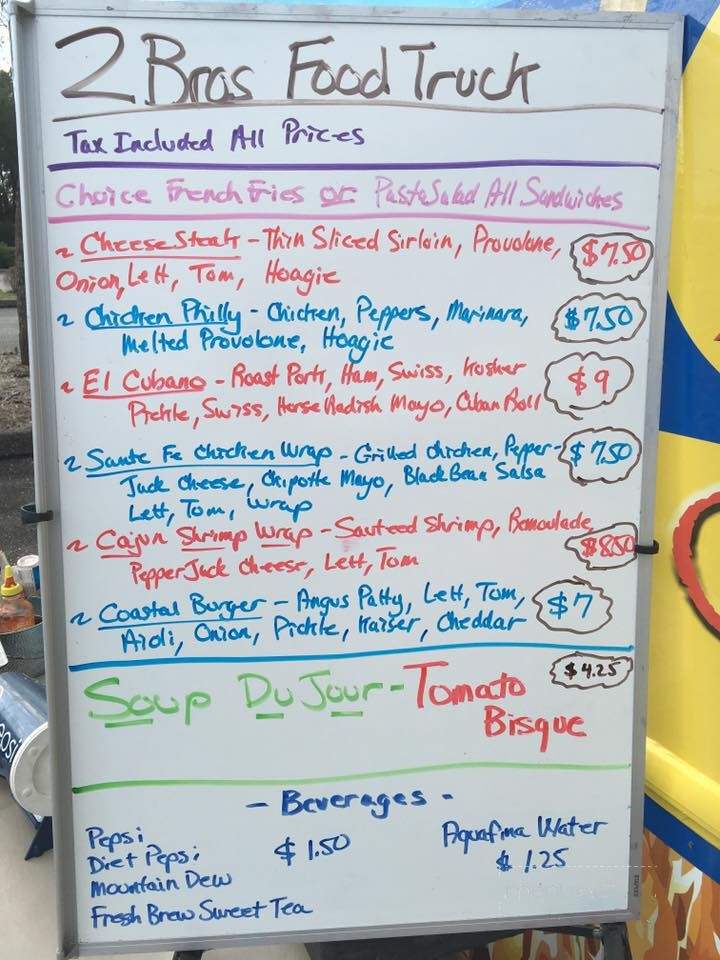 2 Bros Food Truck
Tax Included All Prices
Choice French Fries or Pasta Salad All Sandwiches
~ Cheese Steak - Thin Sliced Sirloin, Provolone, $7.50
Onion, Lett, Tom, Hoagie
~ Chicken Philly - Chicken, Peppers, Marinara, $7.50
Melted Provolone, Hoagie
~ El Cubano - Roast Pork, Ham, Swiss, Kosher $9
Pickle, Swiss, Horse Radish Mayo, Cuban Roll
~ Sante Fe Chicken Wrap - Grilled Chicken, Pepper- $7.50
Jack Cheese, Chipotle Mayo, Black Bean Salsa
Lett, Tom, Wrap
~ Cajun Shrimp Wrap - Sauteed Shrimp, Remoulade, $8.50
Pepper Jack Cheese, Lett, Tom
~ Coastal Burger - Angus Patty, Lett, Tom, $7
Aioli, Onion, Pickle, Kaiser, Cheddar
Soup Du Jour - Tomato $4.25
Bisque
- Beverages -
Pepsi
Diet Pepsi $1.50
Mountain Dew
Fresh Brew Sweet Tea
Aquafina Water
$1.25